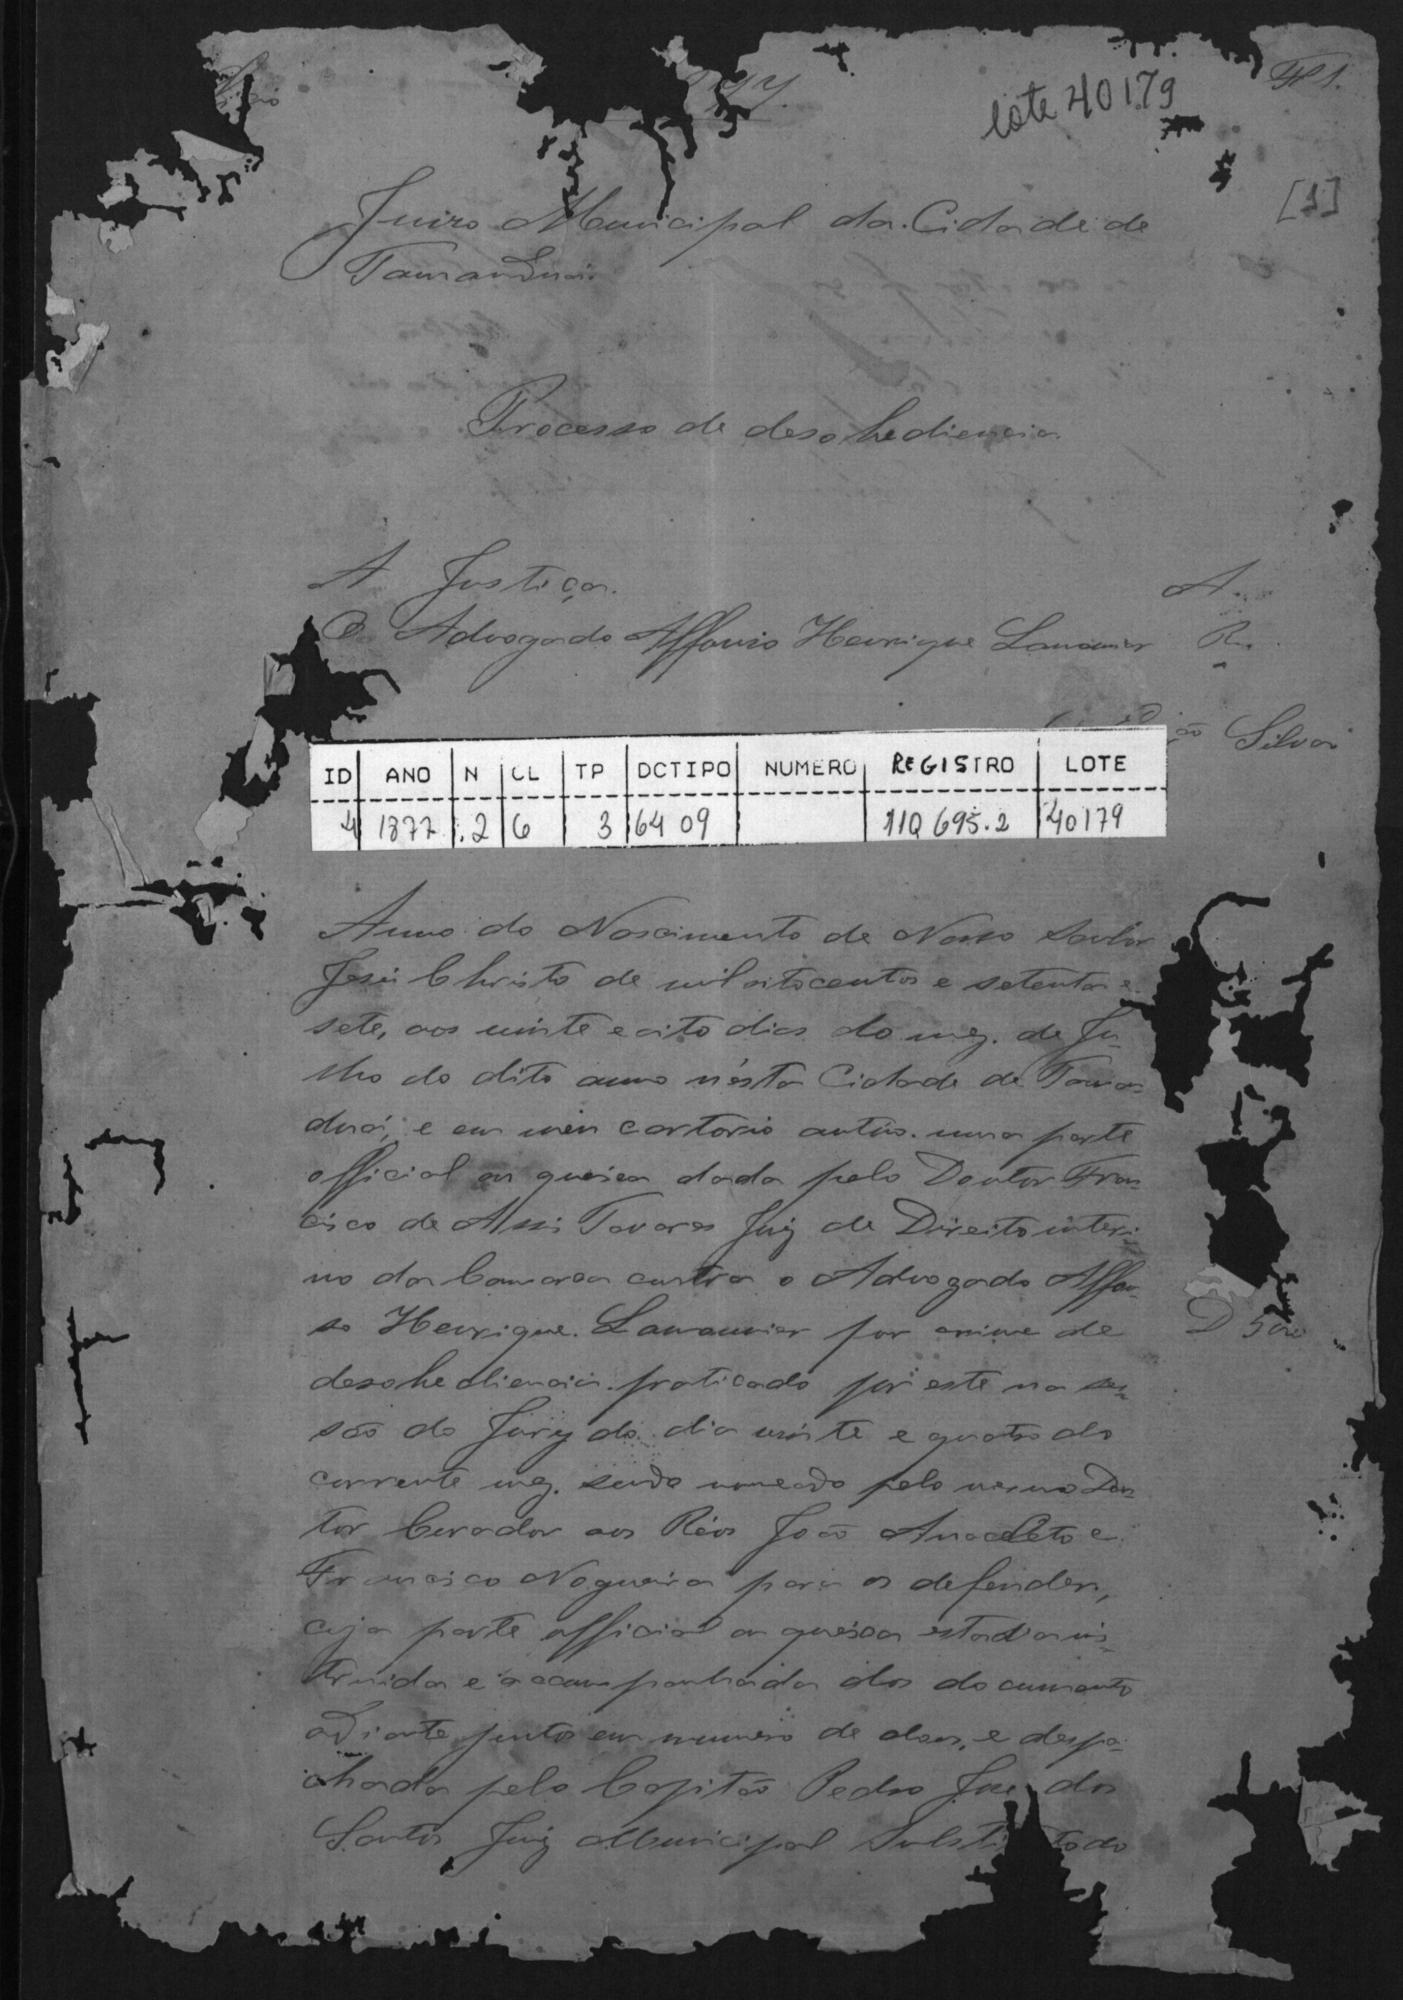 1877.
Fl 1.
lote 40179
[1]
Juizo Municipal da Cidade de
Tamanduá.
Processo de desobediencia
A Justiça. A.
O Advogado Affonso Henrique Lamounier R.
Silva
ID ANO N CL TP DCTIPO NUMERO REGISTRO LOTE
4 1877 .2 6 3 64 09 110 695.2 40179
Anno do Nascimento de Nosso Senhor
Jesus Christo de mil oitocentos e setenta e
sete, aos vinte e oito dias do mez de Ju-
lho do dito anno n'esta Cidade de Taman-
duá, e em meu cartorio autuo uma parte
official ou queixa dada pelo Doutor Fran-
cisco de Assis Tavares Juiz de Direito interi-
no da Comarca contra o Advogado Affon-
so Henrique Lamounier por crime de
desobediencia praticado por este na ses-
são do Jury do dia vinte e quatro do
corrente mez, sendo nomeado pelo mesmo Dou-
tor Curador aos Réos João Anacleto e
Francisco Nogueira para os defender,
cuja parte official ou queixa estava ins-
truida e acompanhada dos documentos
adiante juntos em numero de dous, e despa-
chada pelo Capitão Pedro José dos
Santos Juiz Municipal Substituto do